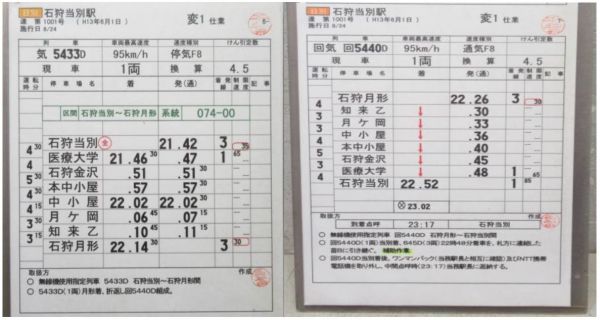 石狩当別駅
変1 仕業
達 第 1001号 (H13年6月1日)
施行日 8/24
列車 車両最高速度 速度種別 けん引定数
気 5433D 95km/h 停気F8
現車 1両 換算 4.5
運転時分 停車場名 着 発(通) 着発線 制限速度 記事
区間 石狩当別~石狩月形 系統 074-00
石狩当別 21.42 3 35
4 30 医療大学 21.46 30 .47 1 65
4 30 石狩金沢 .51 .51 30
5 30 本中小屋 .57 .57 30
4 30 中小屋 22.02 22.02 30
4 月ケ岡 .06 45 .07 15
3 知来乙 .10 45 .11 15
3 15 石狩月形 22.14 30 3 30
取扱方 作成
○ 無線機使用指定列車 5433D 石狩当別~石狩月形間
○ 5433D(1両)月形着、折返し回5440D組成。
石狩当別駅
変1 仕業
達 第 1001号 (H13年6月1日)
施行日 8/24
列車 車両最高速度 速度種別 けん引定数
回気 回5440D 95km/h 通気F8
現車 1両 換算 4.5
運転時分 停車場名 着 発(通) 着発線 制限速度 記事
石狩月形 22.26 3 30
4 知来乙 ↓ .30
3 月ケ岡 ↓ .33
3 中小屋 ↓ .36
4 本中小屋 ↓ .40
5 石狩金沢 ↓ .45
3 医療大学 ↓ .48 1 65
4 石狩当別 22.52 1 85
⊗23.02
取扱方 作成
到着点呼 23:17 石狩当別
○ 無線機使用指定列車 回5440D 石狩月形~石狩当別間
○ 回5440D(1両)当別着、645D(3両)22時48分着車を、札方に連結し